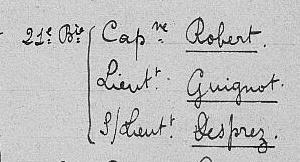 21e Bie Capne Robert.
Lieutt Guignot.
S/Lieutt Desprez.